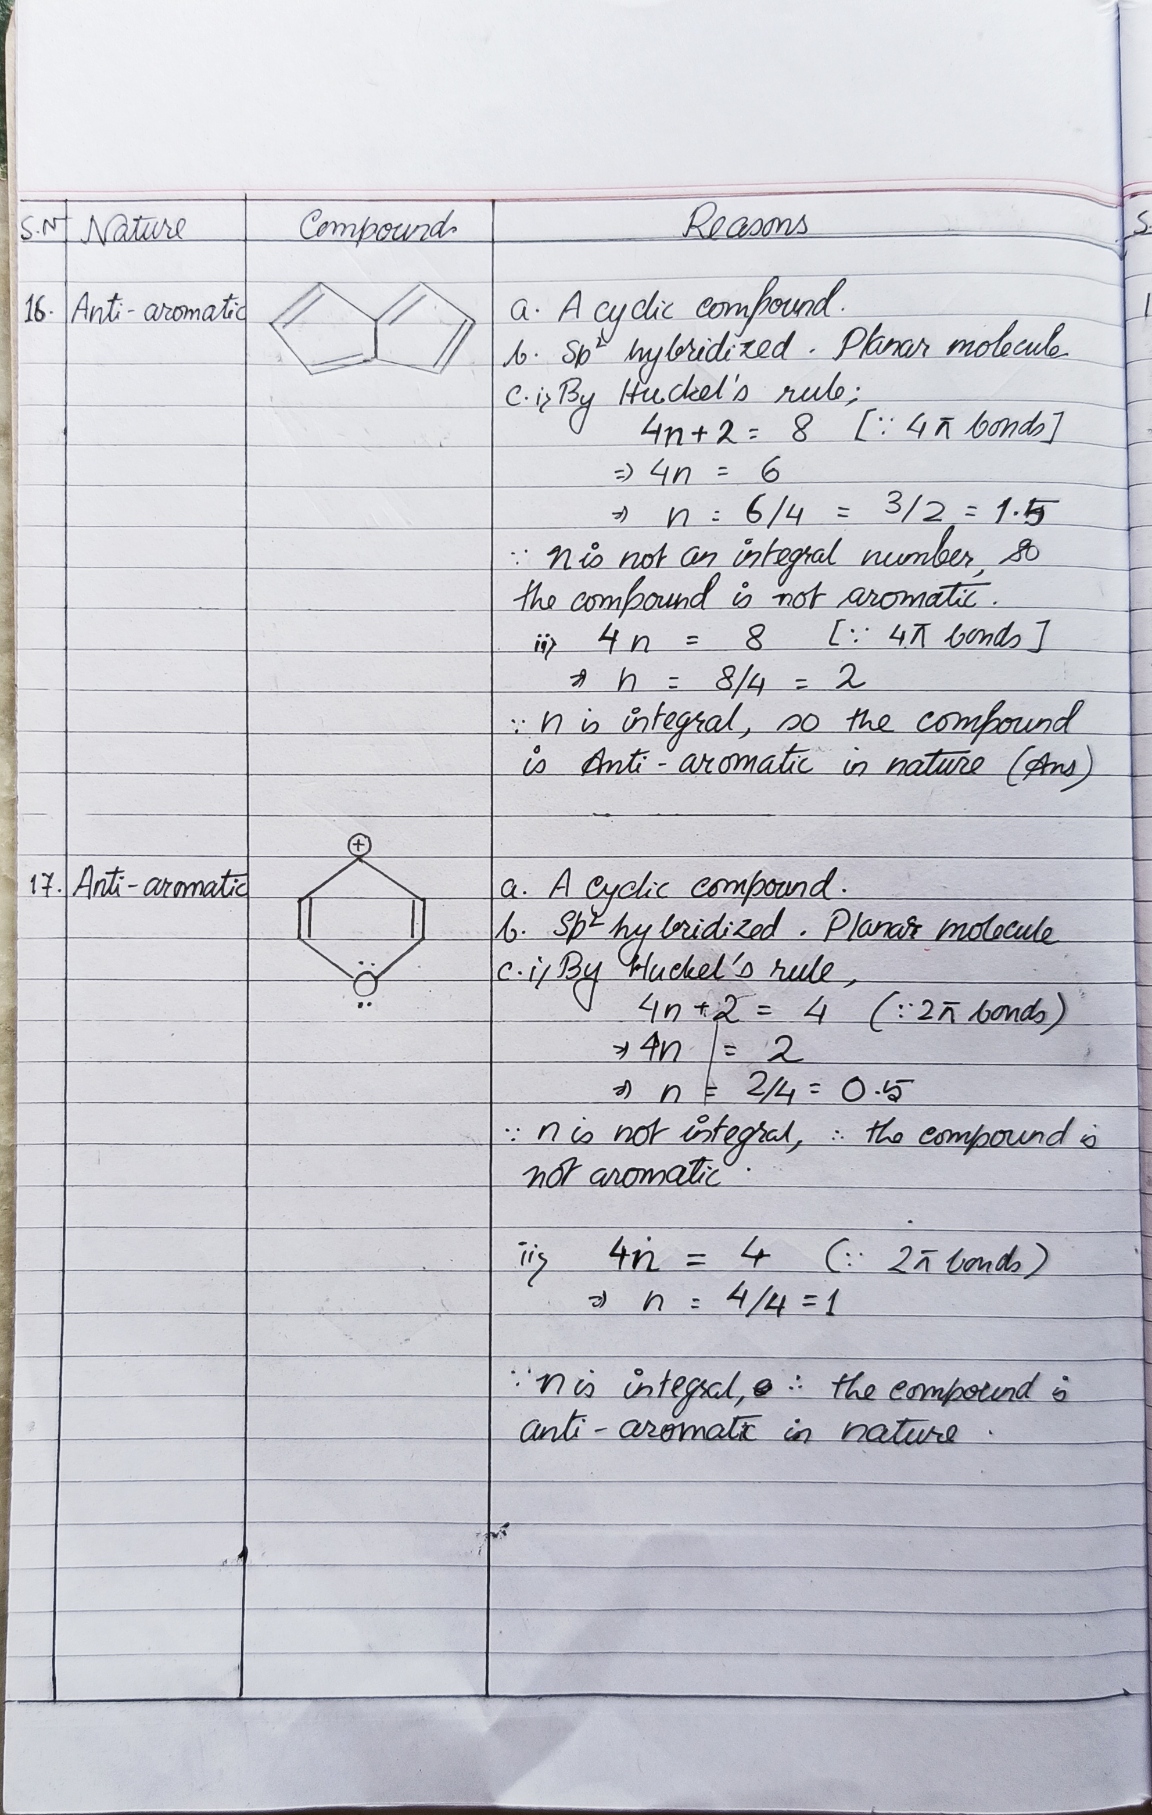 S.N Nature Compounds Reasons
16. Anti-aromatic a. A cyclic compound.
b. Sp² hybridized. Planar molecule
c. i) By Huckel's rule;
4n+2 = 8 [∵ 4π bonds]
⇒ 4n = 6
⇒ n = 6/4 = 3/2 = 1.5
∵ n is not an integral number, so
the compound is not aromatic.
ii) 4n = 8 [∵ 4π bonds]
⇒ n = 8/4 = 2
∵ n is integral, so the compound
is Anti-aromatic in nature (Ans)
⊕
17. Anti-aromatic a. A cyclic compound.
b. Sp² hybridized. Planar molecule
c. i) By Huckel's rule,
O
4n+2 = 4 (∵ 2π bonds)
⇒ 4n = 2
⇒ n = 2/4 = 0.5
∵ n is not integral, ∴ the compound is
not aromatic.
ii) 4n = 4 (∵ 2π bonds)
⇒ n = 4/4 = 1
∵ n is integral, ∴ the compound is
anti-aromatic in nature.
S.
1